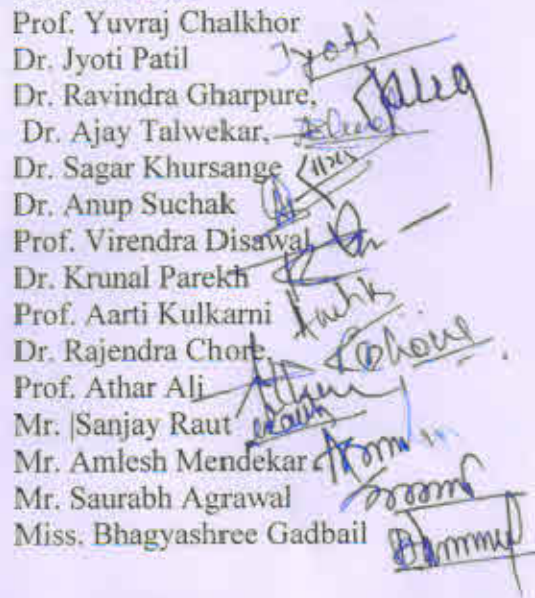 Prof. Yuvraj Chalkhor
Dr. Jyoti Patil Jyoti
Dr. Ravindra Gharpure,
Dr. Ajay Talwekar,
Dr. Sagar Khursange
Dr. Anup Suchak
Prof. Virendra Disawal
Dr. Krunal Parekh
Prof. Aarti Kulkarni
Dr. Rajendra Chore,
Prof. Athar Ali
Mr. |Sanjay Raut
Mr. Amlesh Mendekar
Mr. Saurabh Agrawal
Miss. Bhagyashree Gadbail